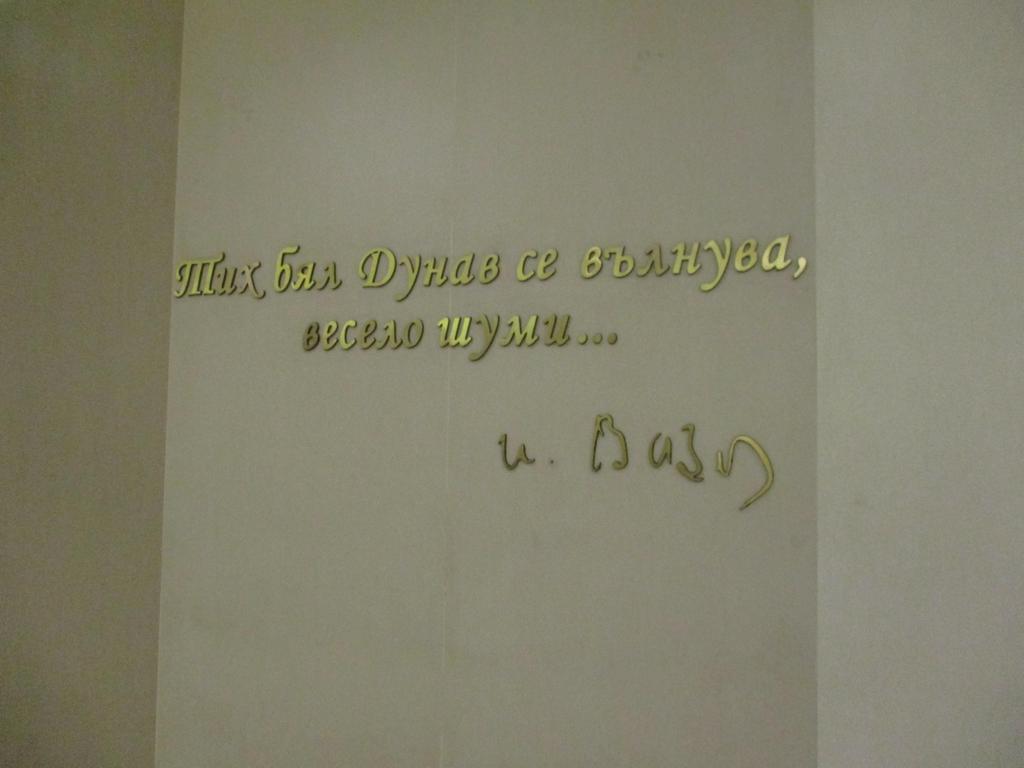 Тих бял Дунав се вълнува,
весело шуми...
И. Вазов